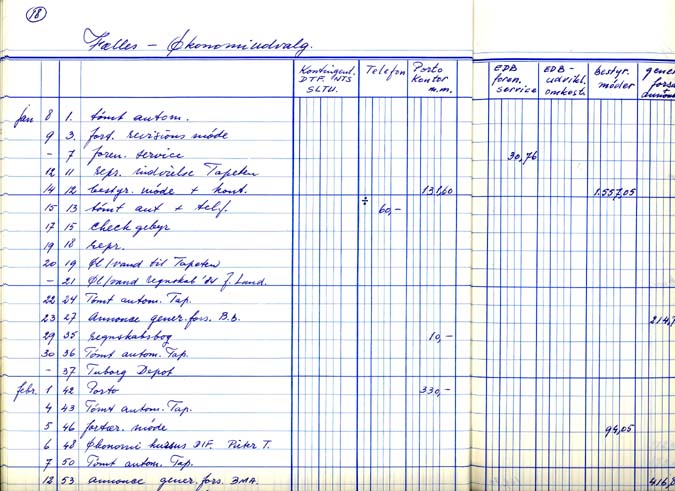 18
Fælles - Økonomiudvalg.
Kontingent. DTF. NTS SLTU. Telefon Porto Kontor m.m. EDB foren. service EDB - udvikl. omkostn. bestyr. møder gener fors
jan 8 1. tømt autom.
9 3. fort. revisions møde
- 7 foren. service 30,76
12 11 repr. indvielse Tapeten
14 12 bestyr. møde + kont. 131,60 1.557,05
15 13 tømt aut + telf. ÷ 60,-
17 15 check gebyr
19 18 repr.
20 19 Øl/vand til Tapeten
- 21 Øl/vand regnskab J. Lund.
22 24 Tømt autom. Tap.
23 27 Annonce gener. fors. B.b. 214,
29 35 regnskabsbog 10,-
30 36 Tømt autom. Tap.
- 37 Tuborg Depot
febr. 1 42 Porto 330,-
4 43 Tømt autom. Tap.
5 46 fortær. møde 94,05
6 48 Økonomi kursus DIF. Pieter T.
7 50 Tømt autom. Tap.
12 53 annonce gener. fors. BMA. 416,8